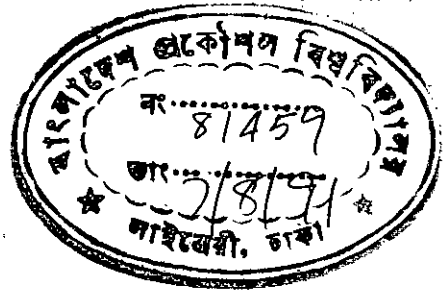 বাংলাদেশ প্রকৌশল বিশ্ববিদ্যালয়
নং..................
81459
তাং..................
লাইব্রেরী, ঢাকা